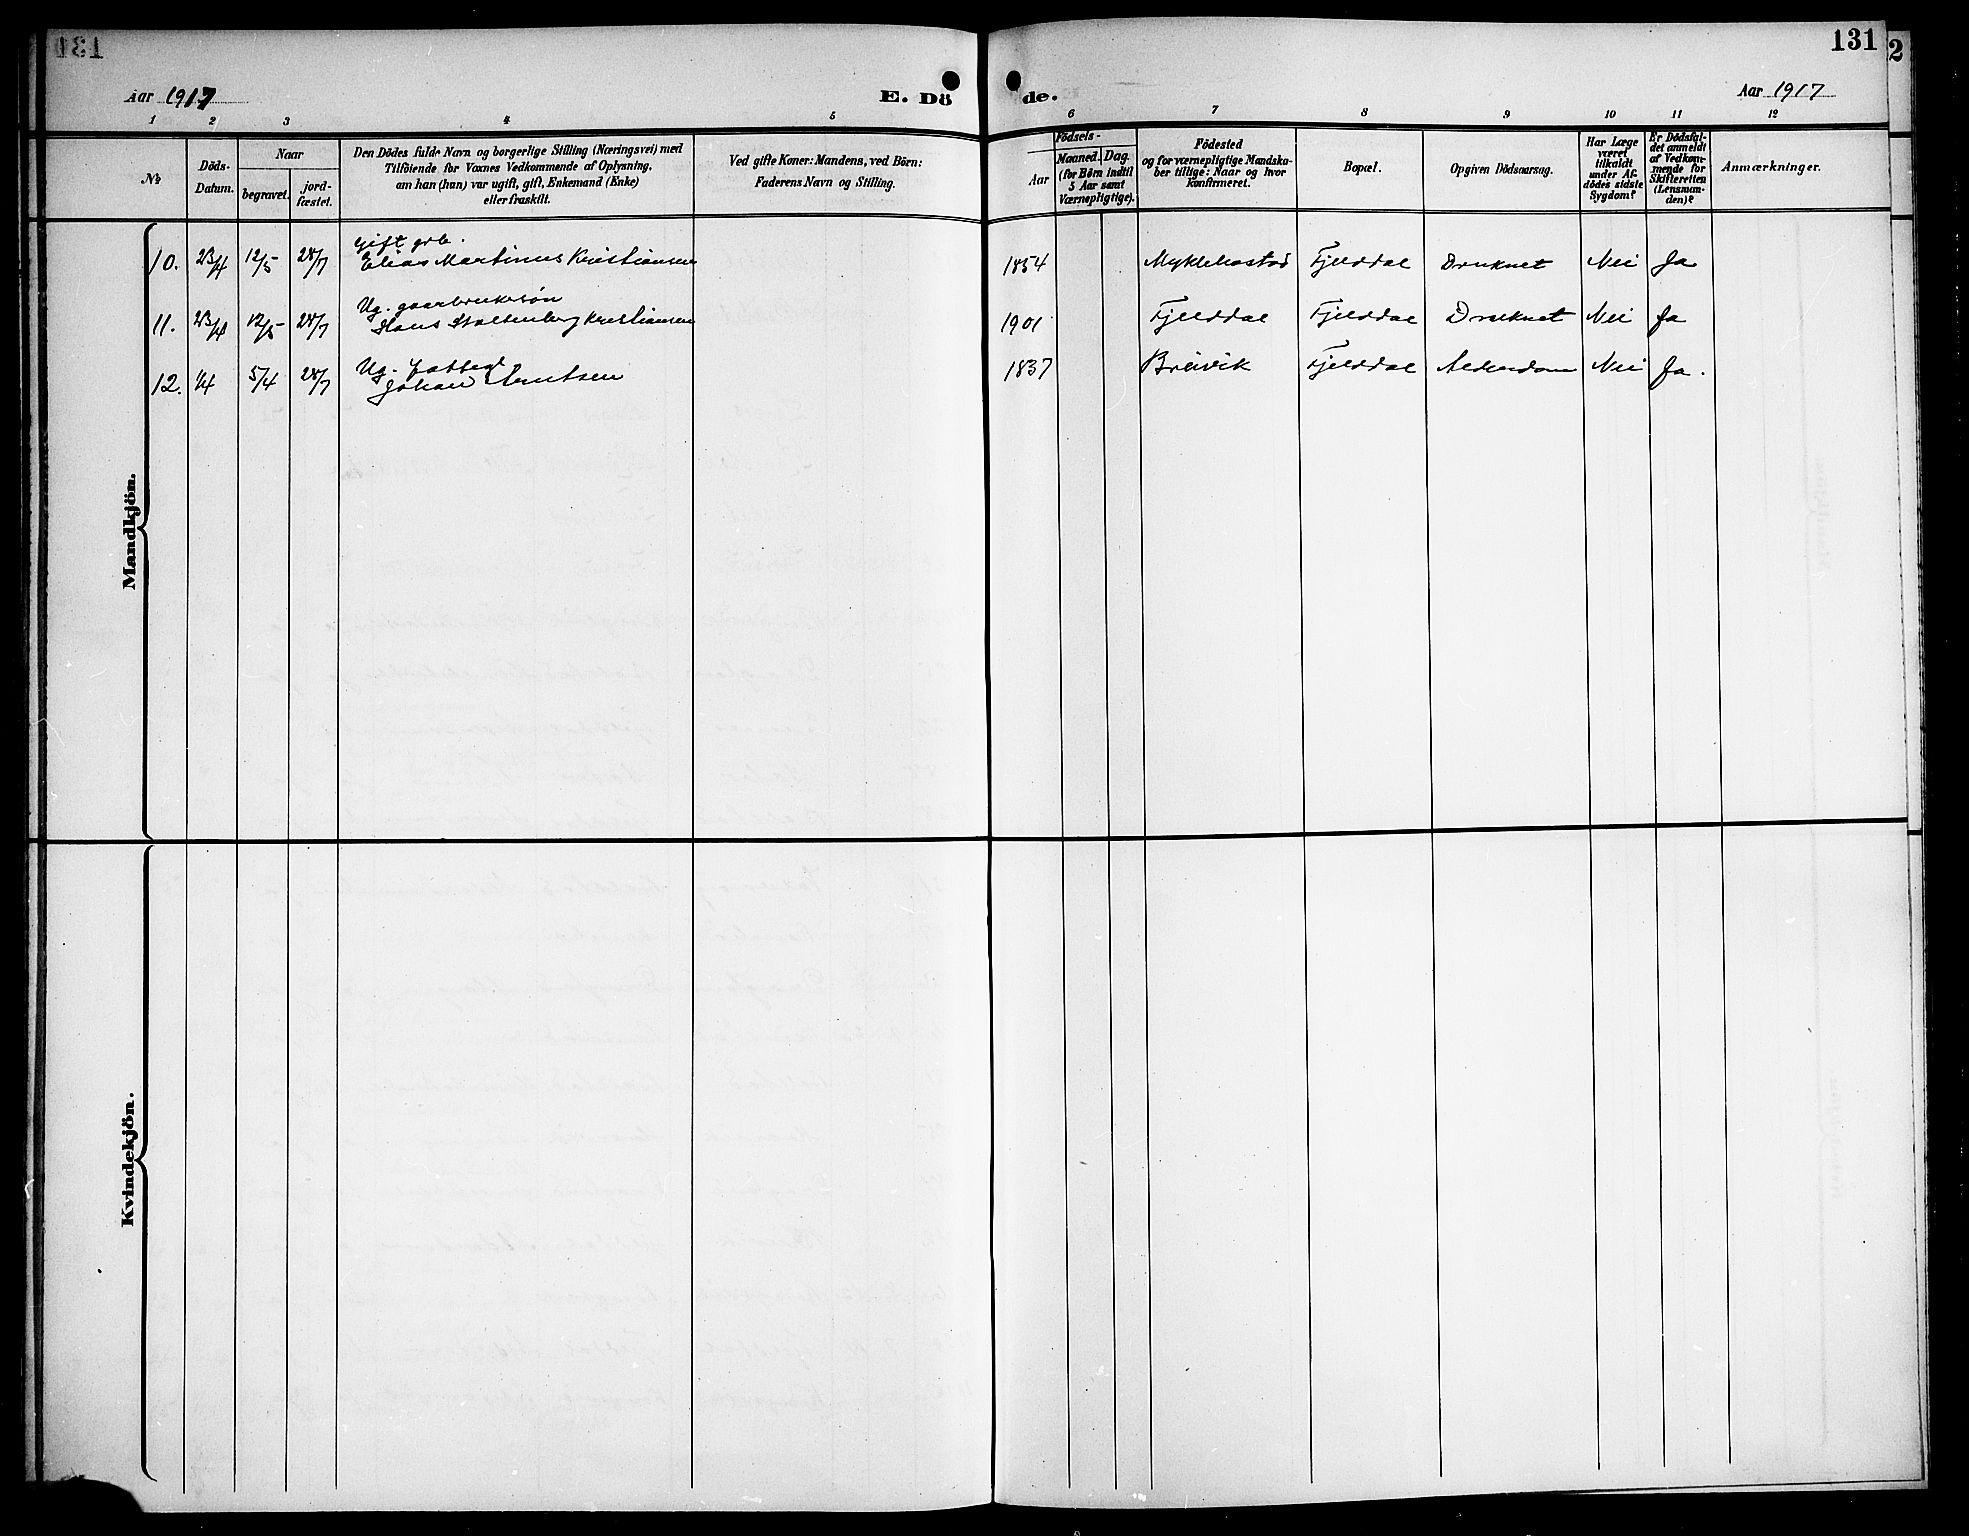 131
131
2
Aar 1917
E. Dö
de.
Aar 1917
1 2 3 4 5 6 7 8 9 10 11 12
№
Döds-
Datum.
Naar
begravet.
jord-
fæstet.
Den Dödes fulde Navn og borgerlige Stilling (Næringsvei) med
Tilföiende for Voxnes Vedkommende af Oplysning,
om han (hun) var ugift, gift, Enkemand (Enke)
eller fraskilt.
Ved gifte Koner: Mandens, ved Börn:
Faderens Navn og Stilling.
Födsels-
Aar
Maaned. Dag.
(for Börn indtil
5 Aar samt
Værnepligtige).
Födested
og for værnepligtige Mandska-
ber tillige: Naar og hvor
konfirmeret.
Bopæl.
Opgiven Dödsaarsag.
Har Læge
været
tilkaldt
under Af-
dödes sidste
Sygdom?
Er Dödsfal-
det anmeldt
af Vedkom-
mende for
Skifteretten
(Lensman-
den)?
Anmærkninger.
Mandkjön.
Gift grb.
10. 23/4 12/5 28/7 Elias Martinus Kristiansen 1854 Myklebostad Fjelddal Druknet Nei Ja
Ug. gaarbrukersøn
11. 23/4 12/5 28/7 Hans Stoltenberg Kristiansen 1901 Fjelddal Fjelddal Druknet Nei Ja
Ug.
12. 1/4 5/4 28/7 Johan Arntsen 1837 Breivik Fjelddal Alderdom Nei Ja.
Kvindekjön.